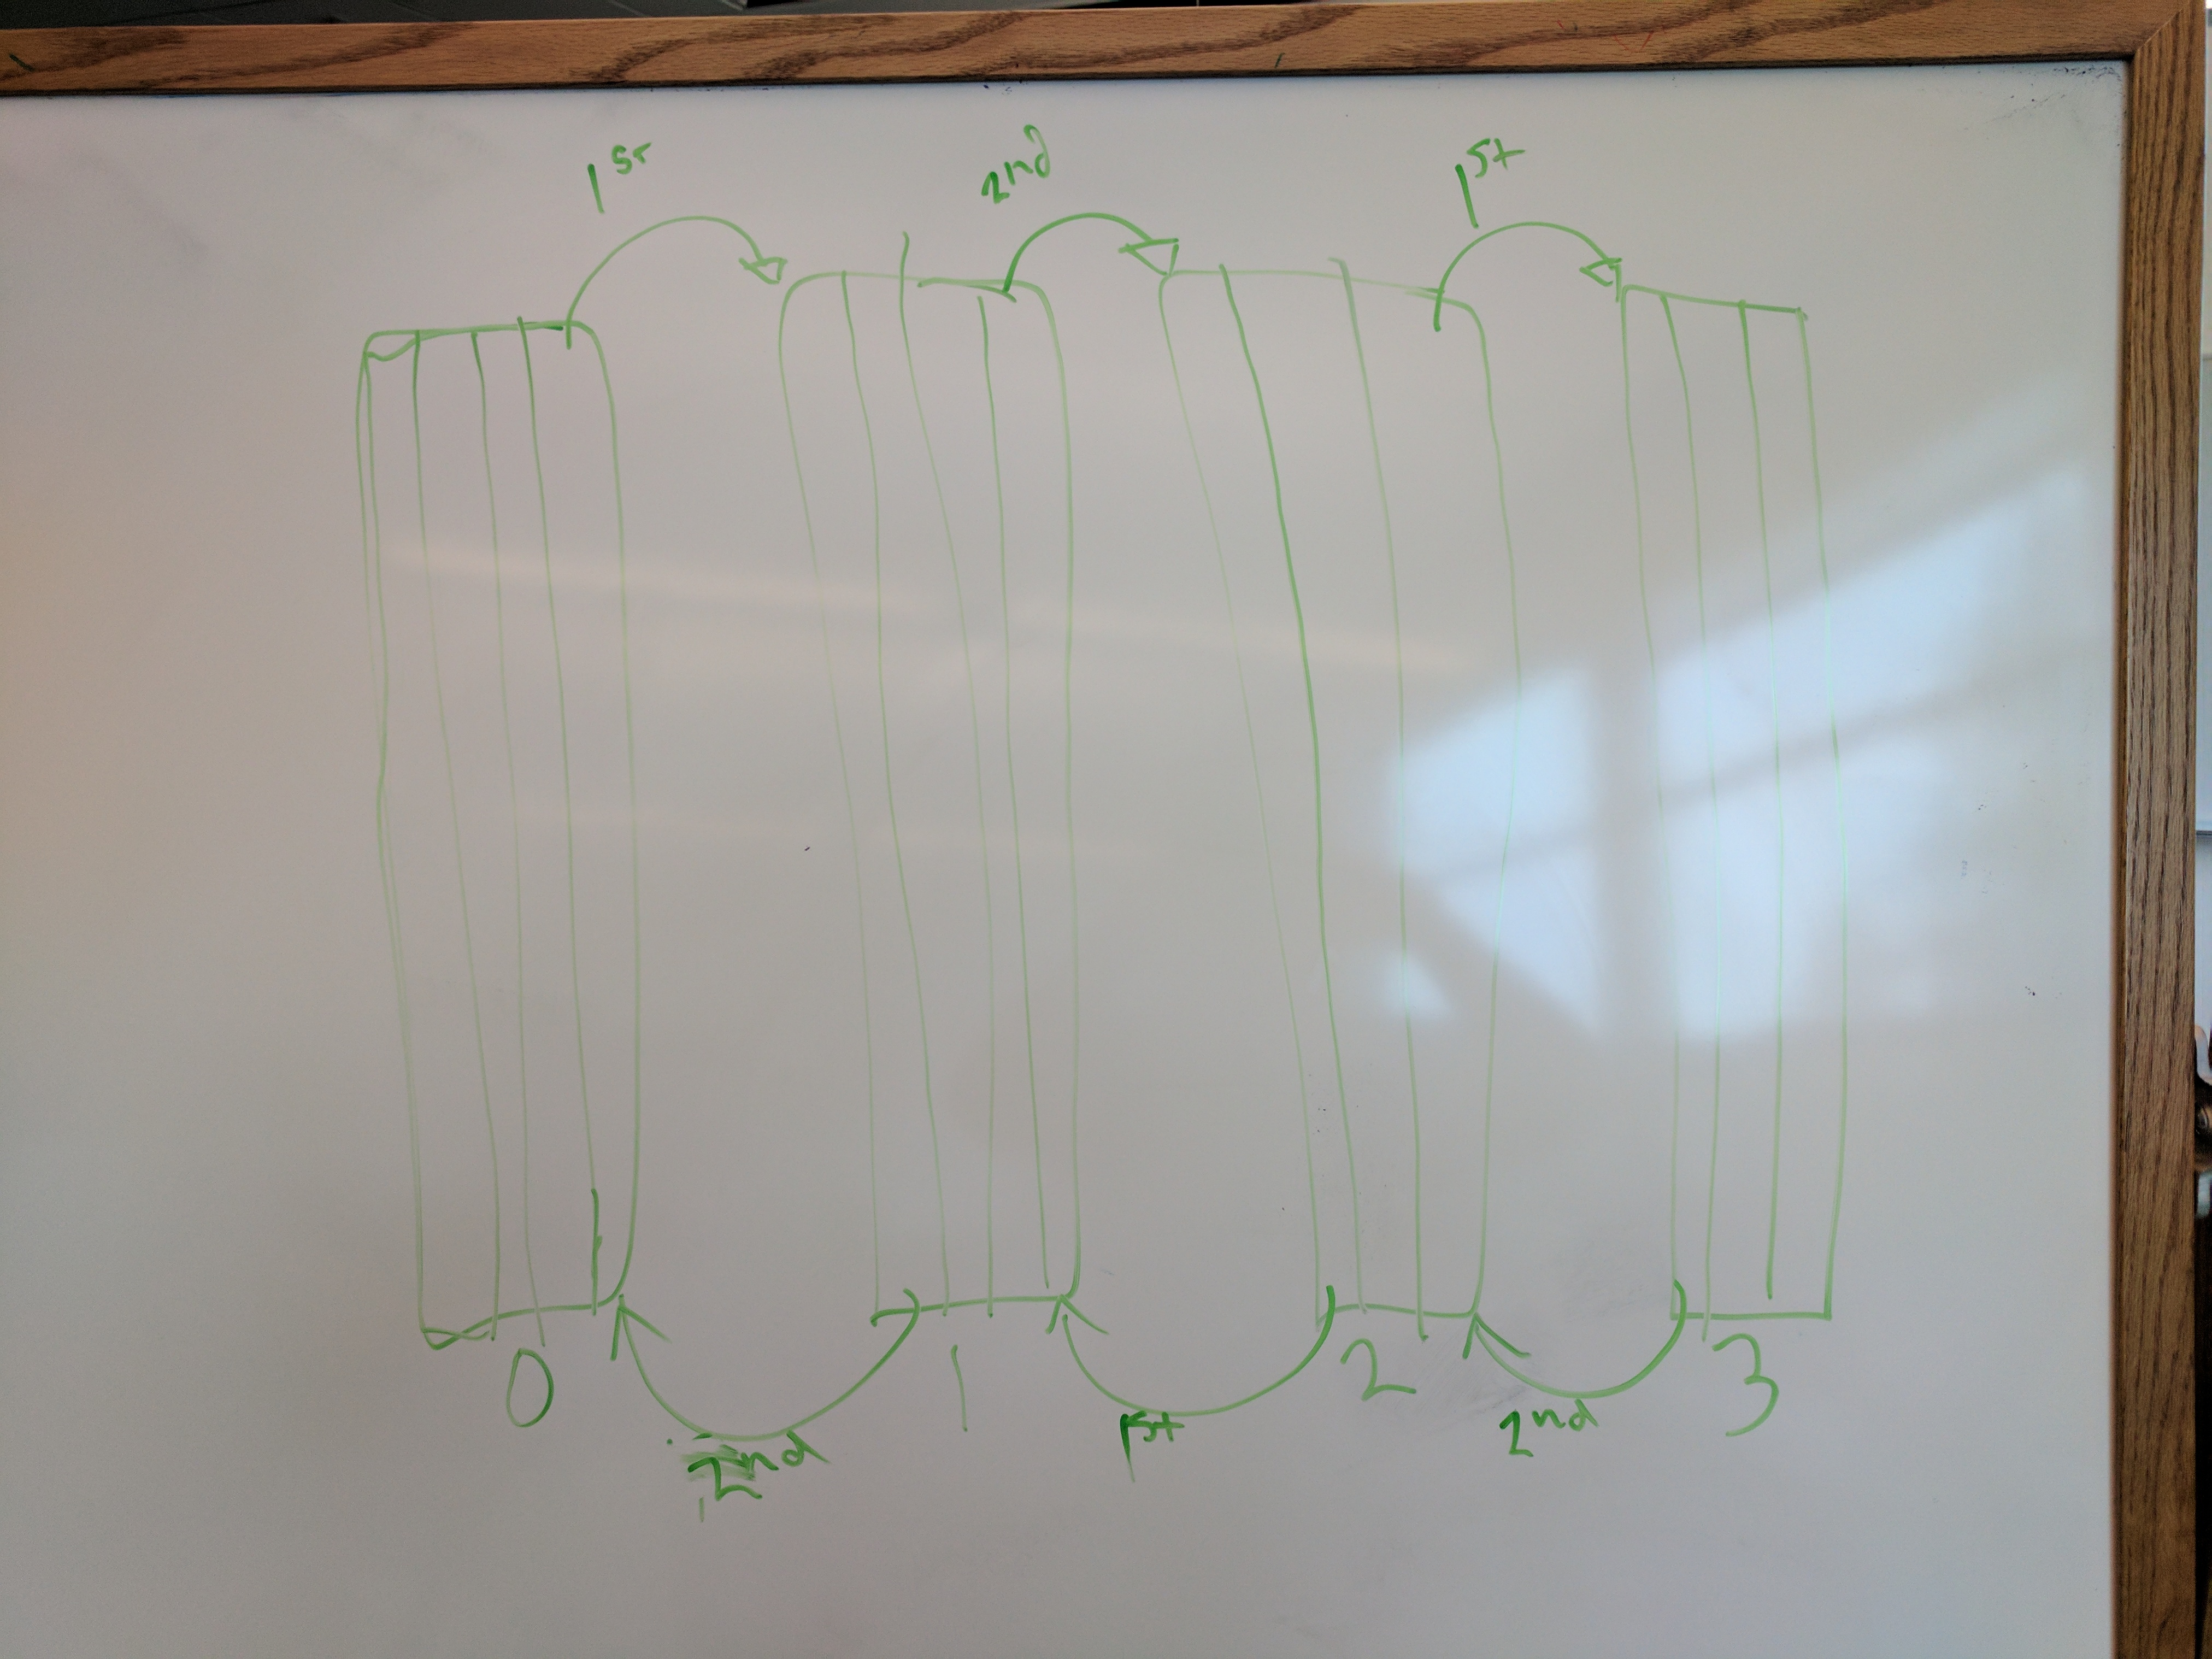 1st
2nd
1st
0
1
2
3
2nd
1st
2nd